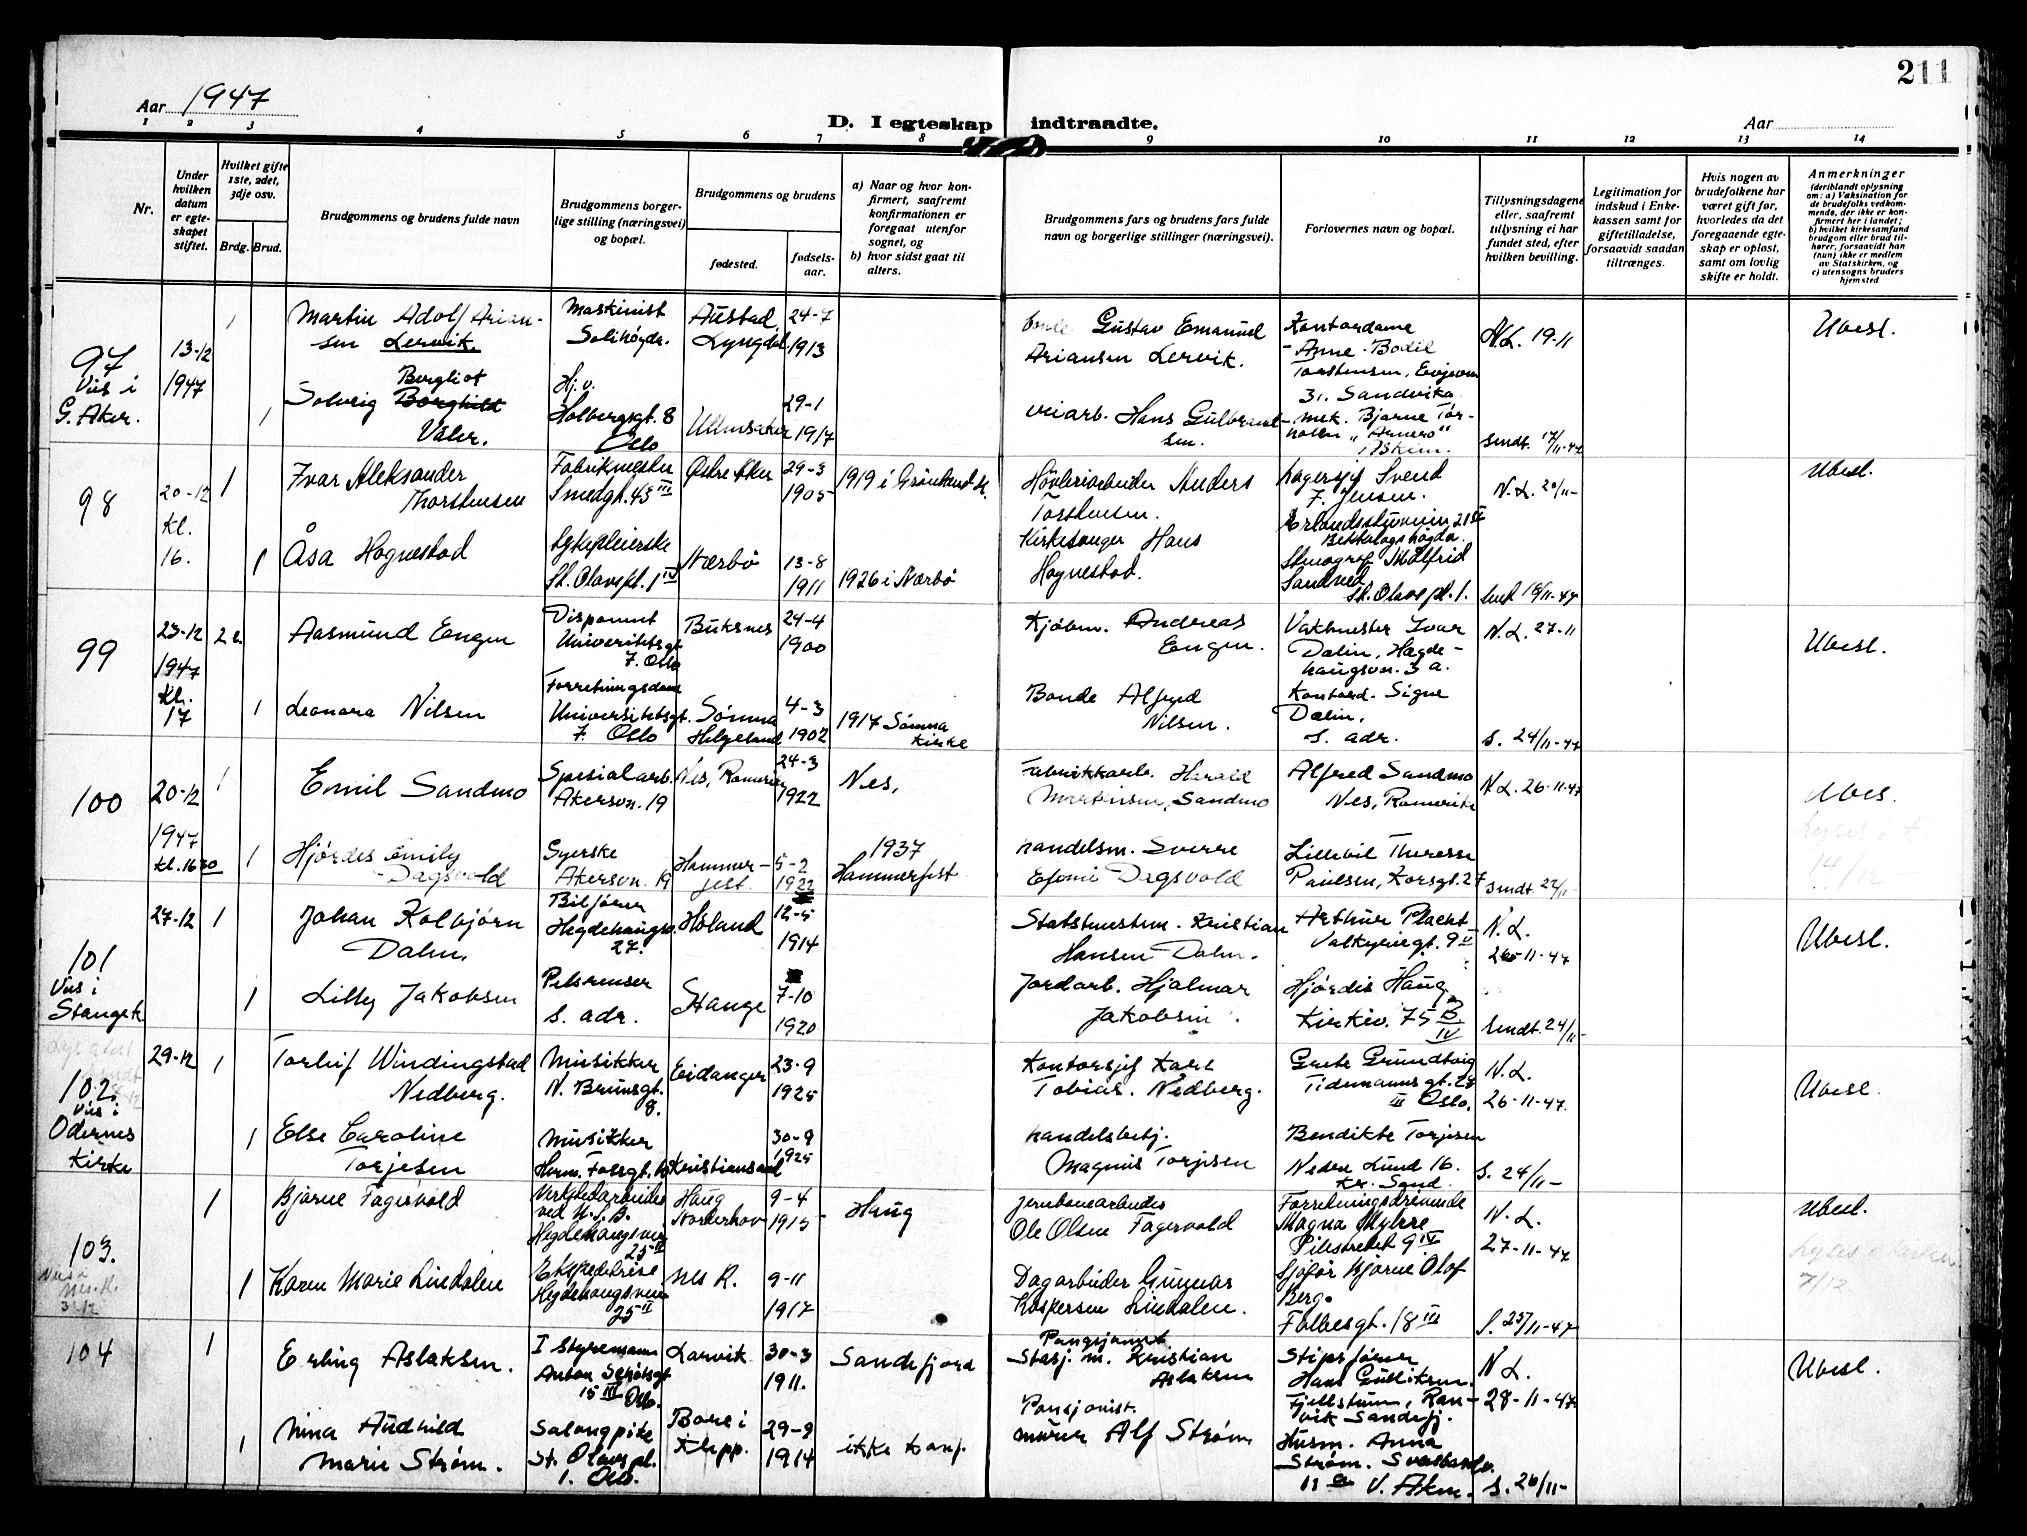 211
Aar 1947
D. I egteskap indtraadte.
Aar
1 2 3 4 5 6 7 8 9 10 11 12 13 14
Nr.
Under hvilken datum er egte-skapet stiftet.
Hvilket gifte 1ste, 2det, 3dje osv.
Brdg. Brud.
Brudgommens og brudens fulde navn
Brudgommens borger-lige stilling (næringsvei) og bopæl.
Brudgommens og brudens
fødested.
fødsels-aar.
a) Naar og hvor kon-firmert, saafremt konfirmationen er foregaat utenfor sognet, og
b) hvor sidst gaat til alters.
Brudgommens fars og brudens fars fulde navn og borgerlige stillinger (næringsvei).
Forlovernes navn og bopæl.
Tillysningsdagene eller, saafremt tillysning ei har fundet sted, efter hvilken bevilling.
Legitimation for indskud i Enke-kassen samt for giftetilladelse, forsaavidt saadan tiltrænges.
Hvis nogen av brudefolkene har været gift før, hvorledes da det foregaaende egte-skap er opløst, samt om lovlig skifte er holdt.
Anmerkninger (deriblandt oplysning om: a) Vaksination for de brudefolks vedkom-mende, der ikke er kon-firmert her i landet; b) hvilket kirkesamfund brudgom eller brud til-hører, forsaavidt han (hun) ikke er medlem av Statskirken, og c) utensogns bruders hjemsted
97 Viis i G. Aker.
13-12 1947
1 Martin Adolf Arian-sen Lervik.
Maskinist Solihøgda.
Austad, Lyngdal
24-7 1913
Gustav Emanuel Ariansen Lervik.
Kontordame Anne-Bodil Torstensen, 31. Sandvika
N.L. 19-11
Ubesl.
1 Solveig Bergliot Borghild Valer.
Hj.v. Holbergsgt. 8 Oslo
Ullensaker
29-1 1917
veiarb. Hans Gulbrand-sen.
mek. Bjarne "Armero" Askim.
Smdt. 17/11-47
98
20-12 Kl. 16.
1 Ivar Aleksander Thorstensen
Fabrikmester Smedgt. 43 III
Østre Aker
29-3 1905
1919 i Grønland k.
Høvleriarbeider Anders Torstensen.
Lagersjef Svend F. Jensen. Erlandsstuveien 21 Bekkelagshøgda.
N.L. 20/11-
Ubesl.
1 Åsa Hognestad
Sykepleierske St. Olavspl. 1 IV
Nærbø
13-8 1911
1926 i Nærbø
Kirkesanger Hans Hognestad.
Stenograf Thalfrid Sandved St. Olavs pl. 1.
18/11-47
99
23-12 1947 Kl. 17
2 Aasmund Engen
Disponent Univeritetsgt 7. Oslo
Buksnes
24-4 1900
Kjøbm. Andreas Engen.
Vaktmester Ivar Dalin, Hegde-haugsvn. 3 a.
N.L. 27-11
Ubesl.
1 Leonora Nilsen
Forretningsdame Universitetsgt. 7. Oslo
Sømna Helgeland
4-3 1902
1917 Sømna kirke
Bonde Alfred Nilsen.
Kontord. Signe Dalin, s. adr.
S. 24/11-47
100
20-12 1947 Kl. 16 30
1 Emil Sandmo
Spesialarb. Akersvn. 19
Nes, Romerike
24-3 1922
Nes,
Fabrikkarb. Harald Martinsen, Sandmo
Alfred Sandmo Nes, Romerike
N.L. 26-11-47
Ubes.
1 Hjørdis Emily Dagsvold
Syerske Akersvn. 19
Hammer-fest
5-2 1922
1937 Hammerfest
Handelsm. Sverre Dagsvold
Lillebil Therese Paulsen, Korsgt. 27
Smdt 22/11-
14/12
101 Viis i Stange k.
27-12
1 Johan Kolbjørn Dalen.
Biljører Hegdehaugsv. 27.
Høland
12-5 1914
Kristian Hansen Dalen.
Arthur Placht Valkyriegt. 9 II
N.L. 26-11-47
Ubesl.
1 Lilly Jakobsen
Pelsrenser s. adr.
Stange
7-10 1920
Jordarb. Hjalmar Jakobsen.
Hjørdis Haug Kirkev. 75 B IV
Smdt. 24/11-
102. Viis i Odernes Kirke
29-12
1 Torleif Windingstad Nedberg.
Musikker N. Brunsgt. 8.
Eidanger
23-9 1925
Kontorsjef Karl Tobias. Nedberg.
Grete Grundtvig Tidemannsgt. 28 III Oslo.
N.L. 26-11-47.
Ubesl.
1 Else Caroline Torjesen
Musikker Herm. Fossgt. 10
Kristiansand
30-9 1925
Handelsbetj. Magnus Torjesen
Bendikte Torjesen Nedre Lund 16. Kr. Sand.
S. 24/11-
103.
1 Bjarne Fagervold
Verkstedarbeider ved N.S.B. Hegdehaugsveien 25 II
Haug Norderhov
9-4 1913
Haug
Jernbanearbeider Ole Olsen Fagervold
Forretningsdrivende Magna Myhre Pilestredet 9 IV
N.L. 27-11-47
Ubesl.
7/12
1 Karen Marie Lindalen
Ekspeditrise Hegdehaugsveien 25 II
Nes R.
9-11 1917
Dagarbeider Gunnar Kaspersen Lindalen.
Sjåfør Bjarne Olof Berg. Falbesgt. 18 III
S. 25/11-47
104
1 Erling Aslaksen.
I Styremann Anton Schjøtsgt 15 III Oslo.
Larvik
30-3 1911.
Sandefjord
Pensjonert Stasj. m. Kristian Aslaksen
Hans Gulliksen. Fjellstuen, Ran-vik Sandefj.
N L. 28-11-47
Ubesl.
1 Nina Audhild Marie Strøm.
Salongpike St. Olavspl. 1. Oslo.
Bore i Klepp.
29-9 1914
ikke konf.
Pensjonist. murer Alf Strøm
Husm. Anna Strøm. 11 V. Aker.
S. 26/11-